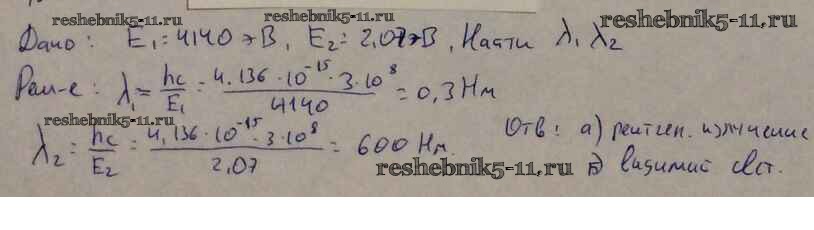 reshebnik5-11.ru
reshebnik5-11.ru
reshebnik5-11.ru
Дано: E₁=4140 эВ, E₂=2,07 эВ, Найти λ₁ λ₂
Реш-е: λ₁ = hc/E₁ = 4.136·10⁻¹⁵·3·10⁸/4140 = 0,3 Нм
reshebnik5-11.ru
λ₂ = hc/E₂ = 4,136·10⁻¹⁵·3·10⁸/2,07 = 600 Нм.
Отв: а) рентген. излучение
б) видимый свет.
reshebnik5-11.ru